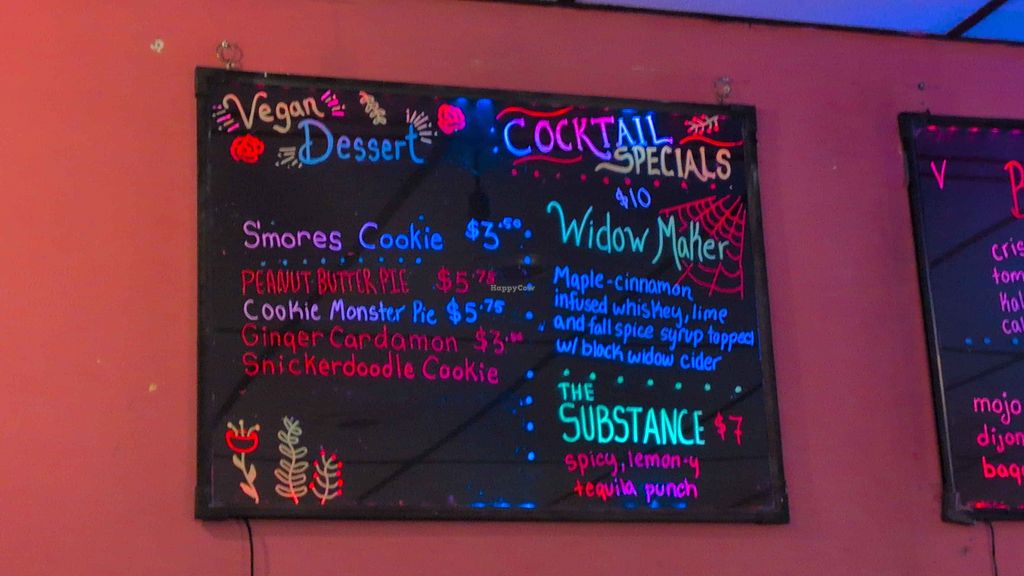 Vegan
Dessert
S'mores Cookie $3.50
PEANUT BUTTER PIE $5.75
Cookie Monster Pie $5.75
Ginger Cardamon $3.00
Snickerdoodle Cookie
COCKTAIL
SPECIALS
$10
Widow Maker
Maple-cinnamon
infused whiskey, lime
and fall spice syrup topped
w/ black widow cider
THE
SUBSTANCE $7
spicy, lemon-y
tequila punch
HappyCow
V
cris
tom
cal
mojo
dijon